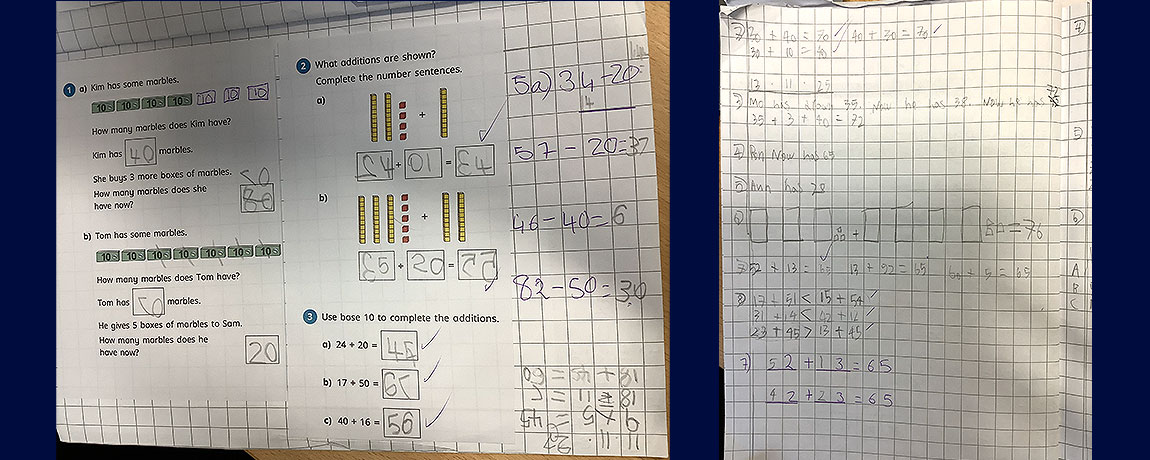 1 a) Kim has some marbles.
10s 10s 10s 10s 10 10 10
How many marbles does Kim have?
Kim has 40 marbles.
She buys 3 more boxes of marbles.
How many marbles does she
have now?
b) Tom has some marbles.
10s 10s 10s 10s 10s 10s 10s
How many marbles does Tom have?
Tom has 70 marbles.
He gives 5 boxes of marbles to Sam.
How many marbles does he
have now?
20
2 What additions are shown?
Complete the number sentences.
a)
+
24 + 10 = 34
b)
+
35 + 20 = 55
3 Use base 10 to complete the additions.
a) 24 + 20 =
b) 17 + 50 =
c) 40 + 16 = 56
5a) 34 - 20
4
57 - 20 = 37
46 - 40 = 6
82 - 50 =
18 + 42 = 60
9 × 5 = 45
30 + 40 = 70 40 + 30 = 70
30 + 10 = 40
13 . 11 . 25
35 + 3 + 40 = 72
4) Ben Now has 65
5) Ann has 20
= 76
7) 52 + 13 =
8) 17 + 51 < 15 + 54
23 + 45 > 13 + 45
7) 52 + 13 = 65
42 + 23 = 65